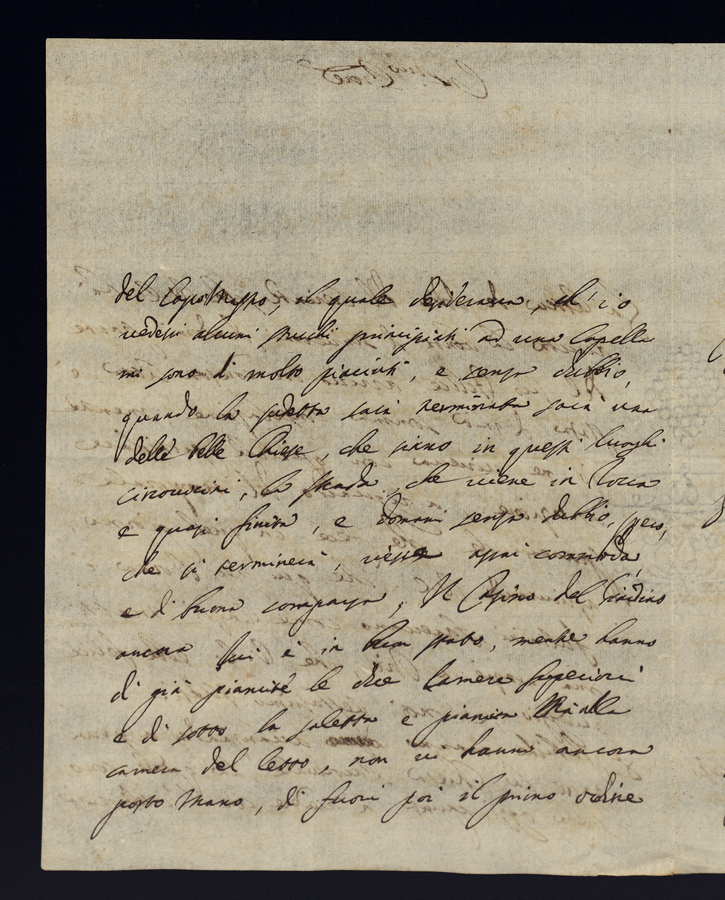 del Capo Mastro, il quale desiderava, ch' io
vedessi alcuni stucchi principiati ad una Capella
mi sono di molto piaciuti, e senza dubbio,
quando la sudetta sarà terminata sarà una
delle belle Chiese, che siano in questi luoghi
circonvicini, la strada, che viene in Rocca
e quasi finita, e domani senza dubbio, spero,
che si terminerà, assai commoda,
e di buona comparsa, Il Casino del Giardino
ancora lui è in buon stato, mentre hanno
di già pianate le due Camere superiori
e di sotto la saletta e pianata alla
camera del letto, non vi hanno ancora
posto mano, di fuori poi il primo ordine